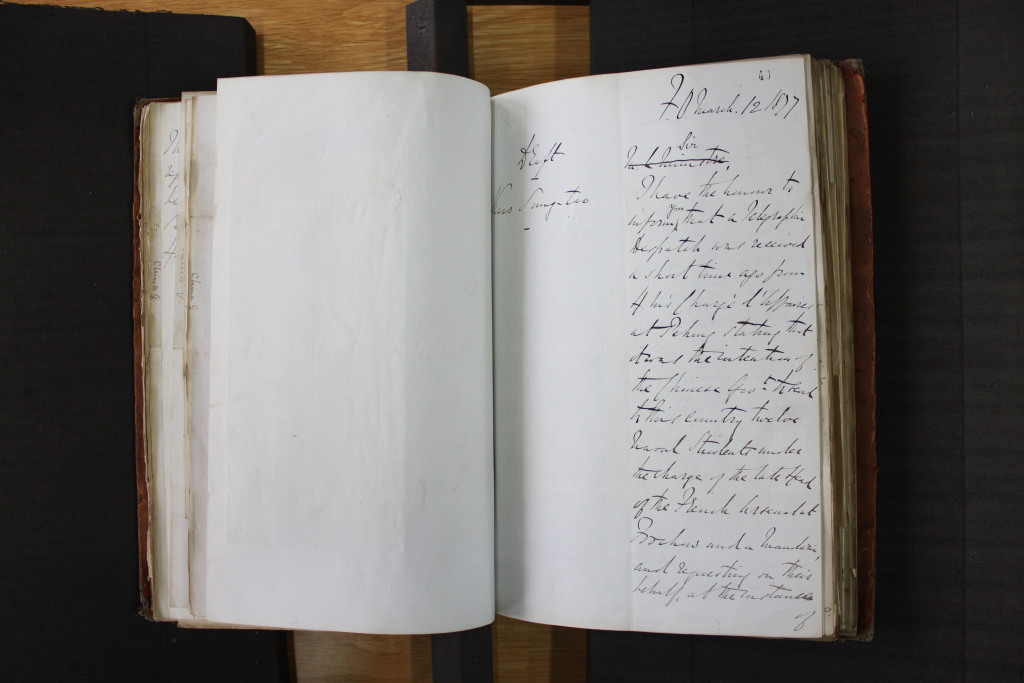 43
F.O. March. 12 1877
Draft
Kuo Sung-tao
Sir
M. le Ministre,
I have the honour to
inform you that a Telegraphic
Despatch was received
a short time ago from
H M's Chargé d'Affaires
at Peking stating that
it was the intention of
the Chinese Govt to send
to this country twelve
Naval Students under
the charge of the late Head
of the French Arsenal at
Foochow and a Mandarin,
and requesting on their
behalf, at the instance
of
China &
China &